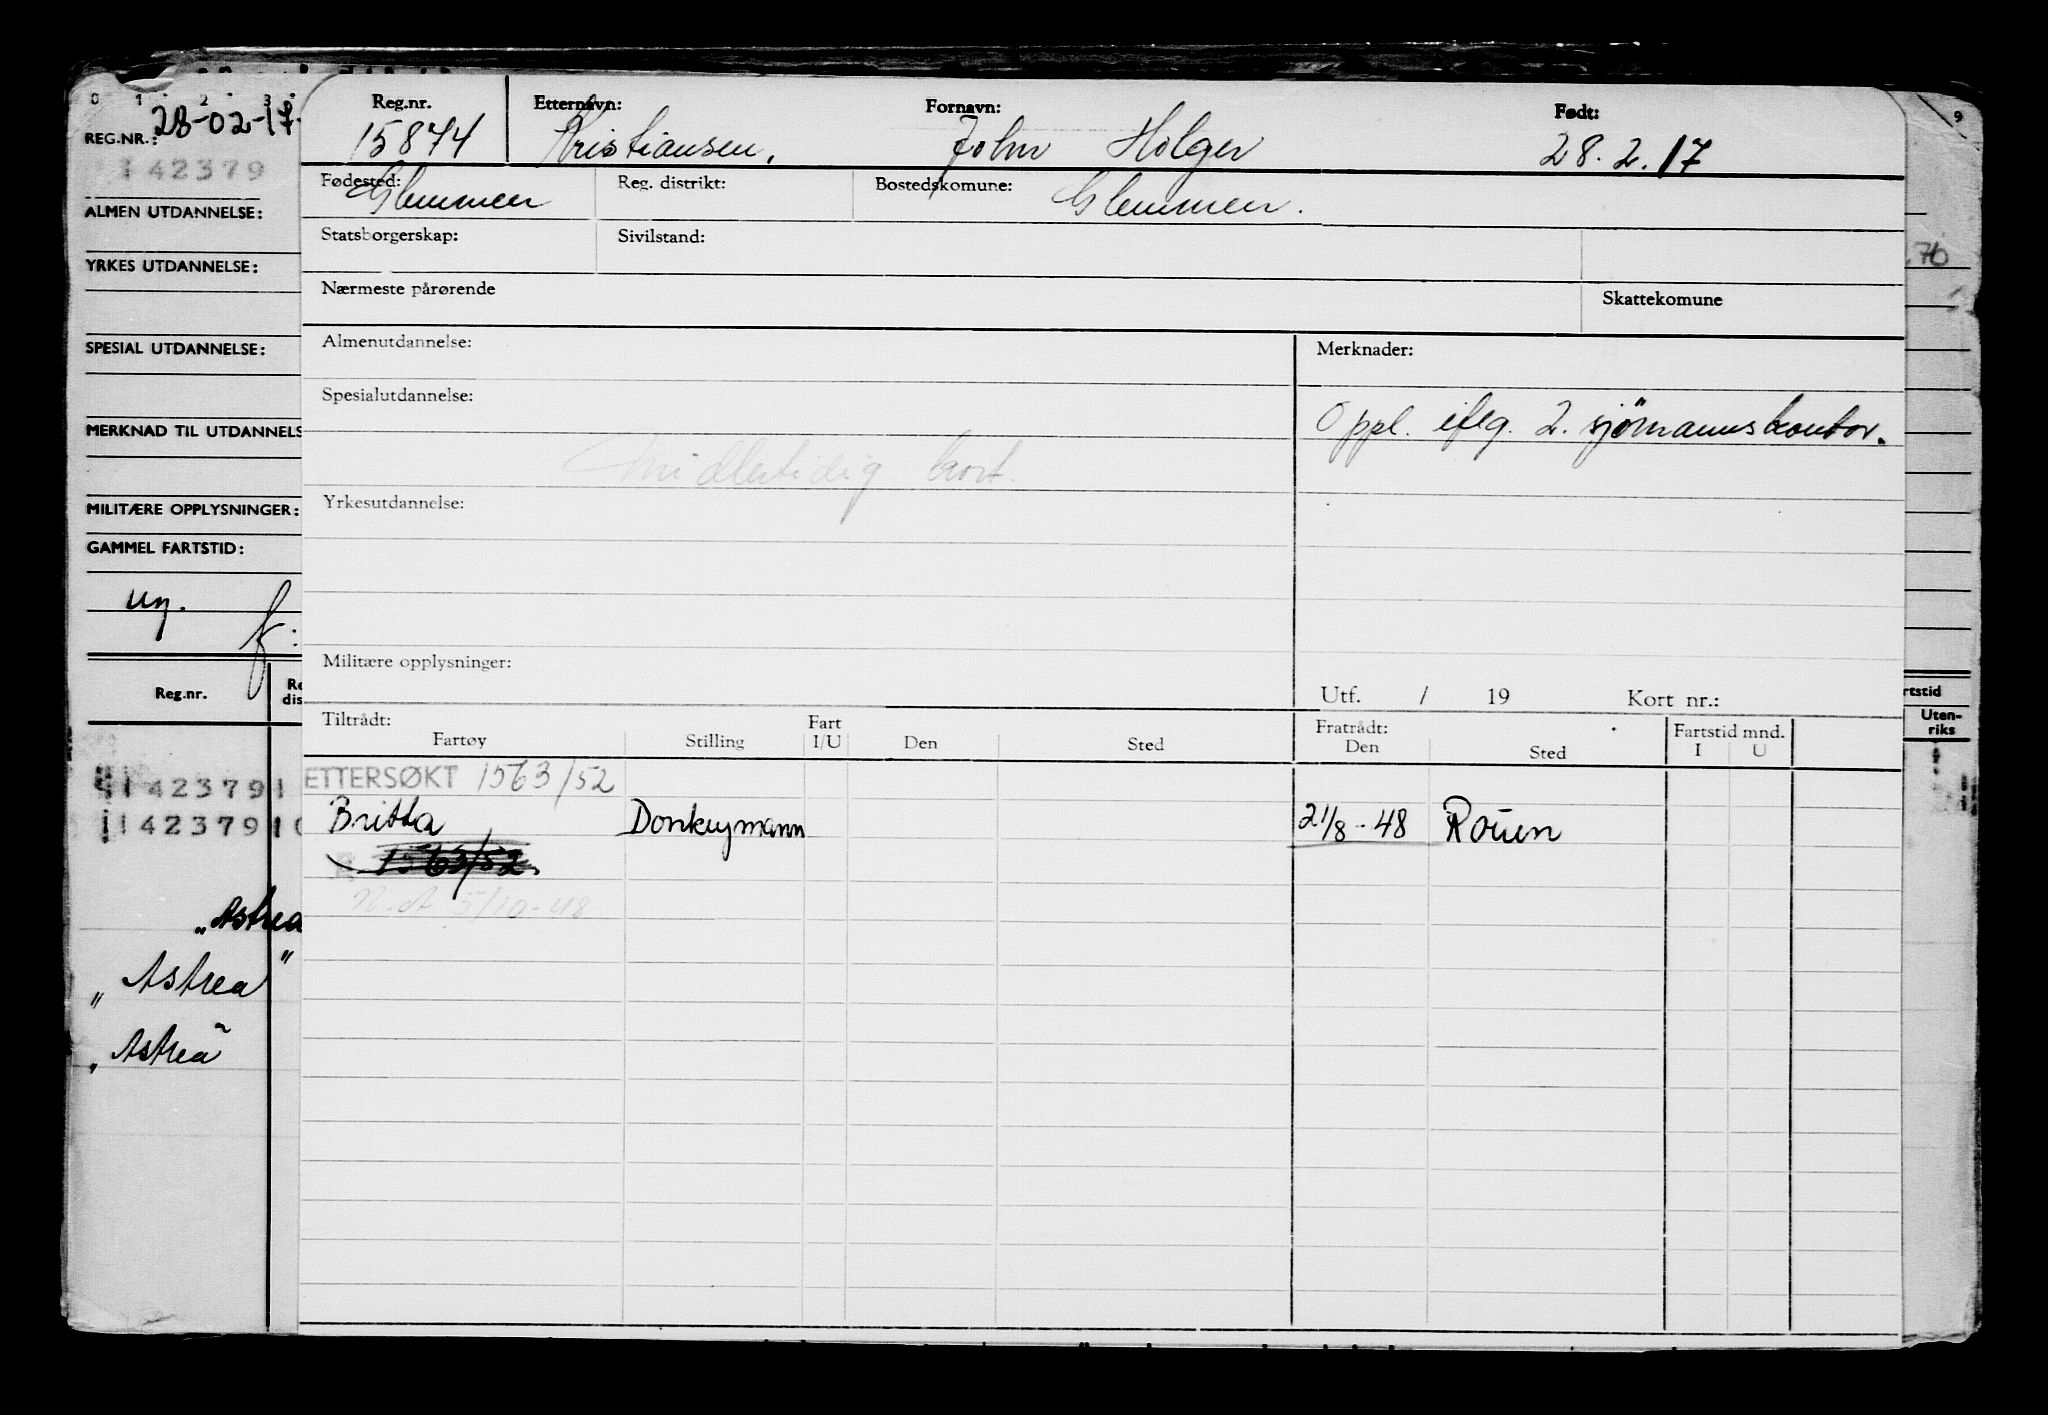 0 1 2 3
28-02-17.
REG.NR.:
142379
ALMEN UTDANNELSE:
YRKES UTDANNELSE:
SPESIAL UTDANNELSE:
MERKNAD TIL UTDANNELS
MILITÆRE OPPLYSNINGER:
GAMMEL FARTSTID:
un.
Reg.nr.
Re
dis
1423791
1423791
„Astrea
„Astrea"
„Astrea"
Reg.nr. Etternavn: Fornavn: Født:
15874 Kristiansen, John Holger 28.2.17
Fødested: Reg. distrikt: Bostedskomune:
Glemmen Glemmen.
Statsborgerskap: Sivilstand:
Nærmeste pårørende Skattekomune
Almenutdannelse: Merknader:
Spesialutdannelse:
Oppl. iflg. 2. sjömannskontor.
Midlertidig kort.
Yrkesutdannelse:
Militære opplysninger:
Utf. / 19 Kort nr.:
Tiltrådt: Fart Fratrådt: Fartstid mnd.
Fartøy Stilling I/U Den Sted Den Sted I U
ETTERSØKT 1563/52
Britta Donkeymann 21/8-48 Rouen
1563/52.
5/10-48
9
.70
rtstid
Uten-
riks